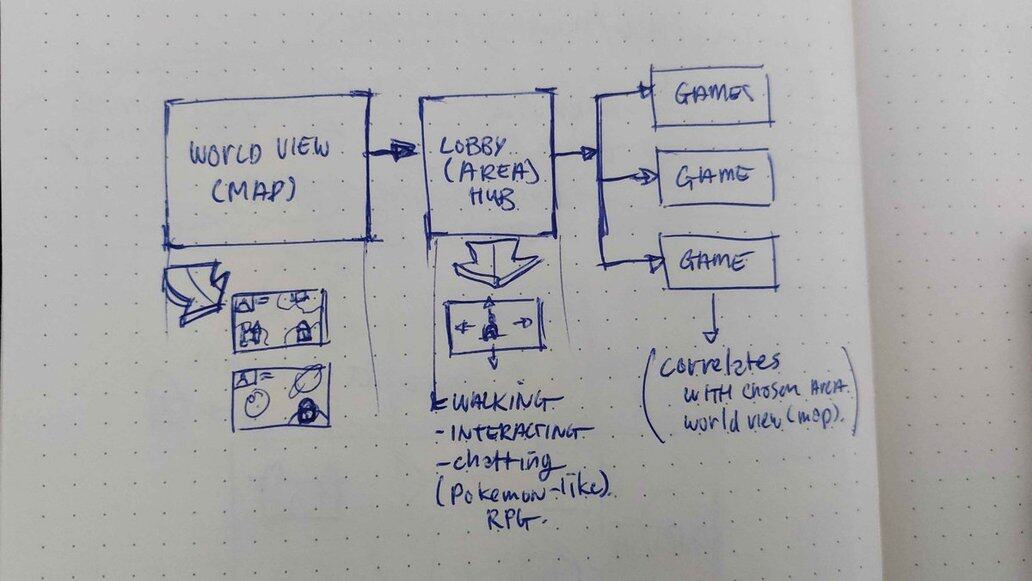 WORLD VIEW
(MAP)
LOBBY
(AREA)
HUB
GAMES
GAME
GAME
A =
A =
- WALKING
- INTERACTING
- chatting
(Pokemon-like)
RPG.
(correlates
WITH chosen AREA
world view (map).)